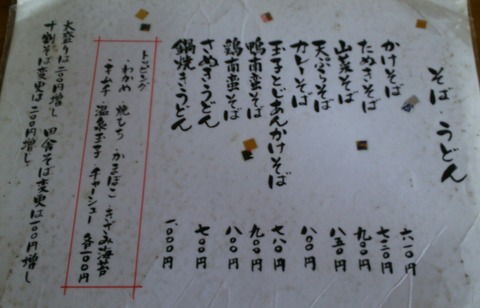 そば うどん
かけそば 六一〇円
たぬきそば 七二〇円
山菜そば 九〇〇円
天ぷらそば 八五〇円
カレーそば 八〇〇円
玉子とじあんかけそば 七八〇円
鴨南蛮そば 九〇〇円
鶏南蛮そば 八〇〇円
さぬきうどん 七〇〇円
鍋焼きうどん 一.〇〇〇円
トッピング
・わかめ・焼もち・かまぼこ・きざみ海苔
・キムチ・温泉玉子・チャーシュー 各一〇〇円
大盛りは二〇〇円増し 田舎そば変更は一〇〇円増し
十割そば変更は二〇〇円増し